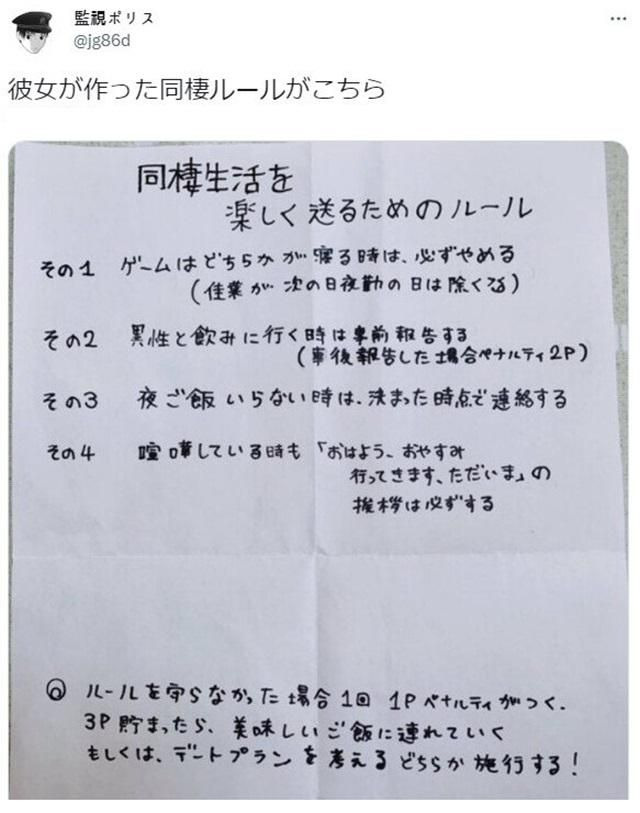 監視ポリス
@jg86d
彼女が作った同棲ルールがこちら
同棲生活を
楽しく送るためのルール
その1 ゲームはどちらかが寝る時は、必ずやめる
(佳業が次の日夜勤の日は除くる)
その2 異性と飲みに行く時は事前報告する
(事後報告した場合ペナルティ2P)
その3 夜ご飯いらない時は、決まった時点で連絡する
その4 喧嘩している時も「おはよう、おやすみ
行ってきます、ただいま」の
挨拶は必ずする
ルールを守らなかった場合1回 1Pペナルティがつく.
3P貯まったら、美味しいご飯に連れていく
もしくは、デートプランを考えるどちらか施行する!